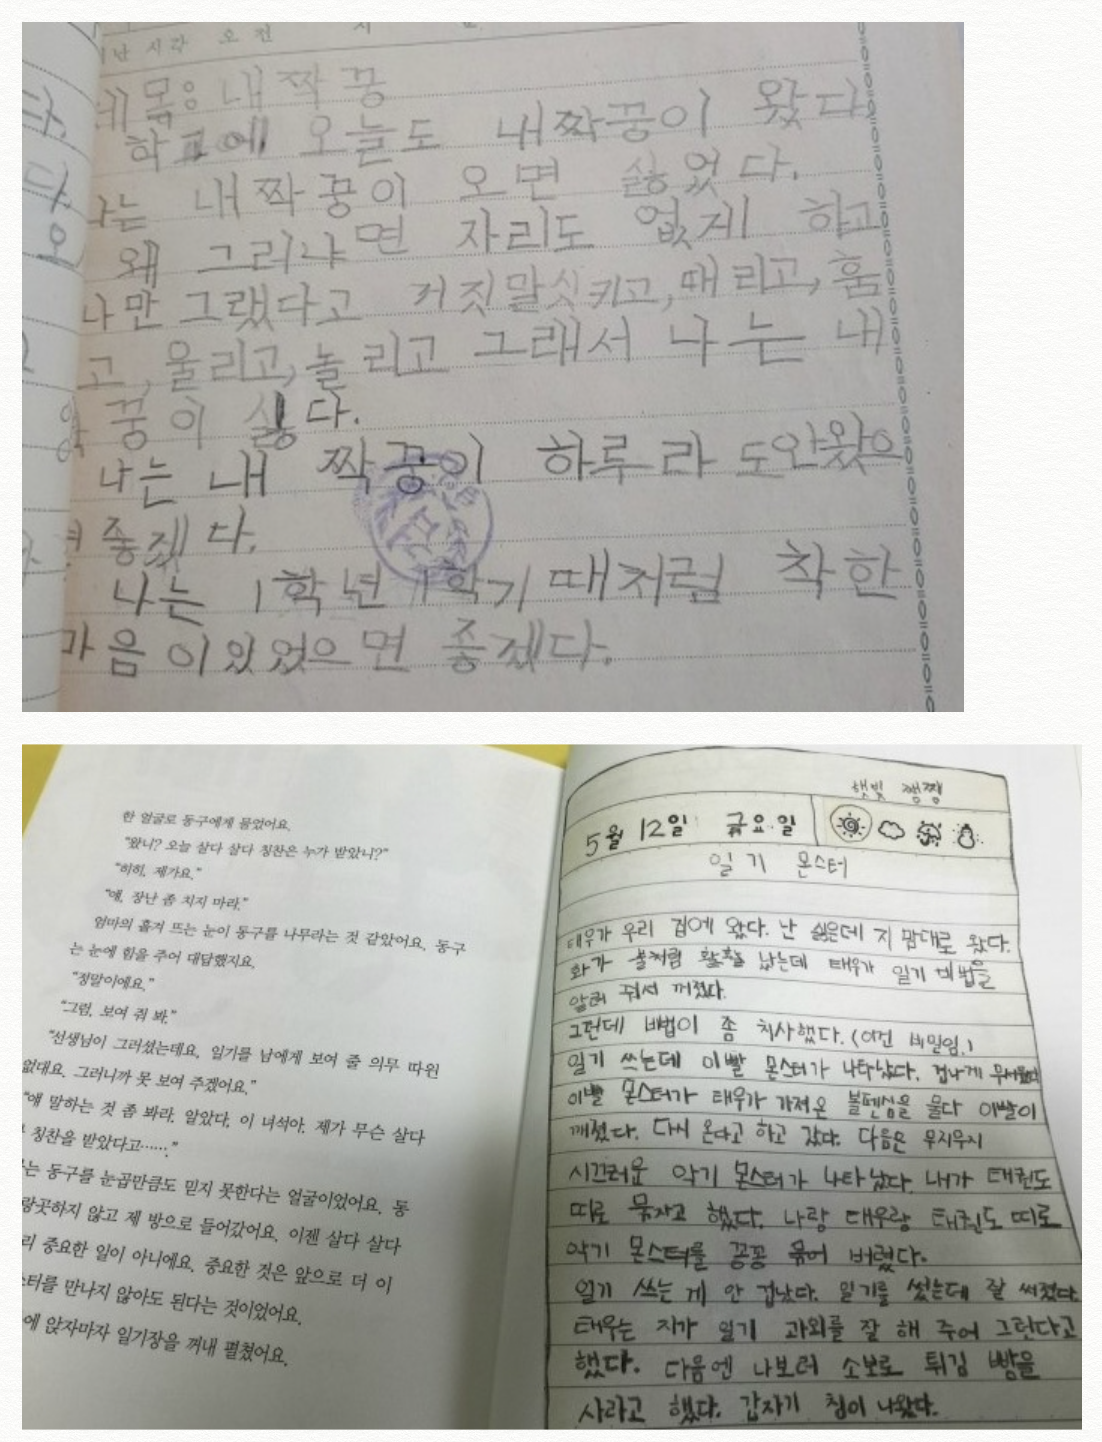 난 시각 오전 시
제목: 내 짝꿍
학교에 오늘도 내짝꿍이 왔다.
나는 내짝꿍이 오면 싫었다.
왜 그러냐면 자리도 없게 하고
나만 그랬다고 거짓말싯키고, 때리고, 훔
고, 울리고, 놀리고 그래서 나는 내
짝꿍이 싫다.
나는 내 짝꿍이 하루라도안왔으
면 좋겠다.
나는 1학년 1학기때처럼 착한
마음이있었으면 좋겠다.
한 얼굴로 동구에게 물었어요.
"왔니? 오늘 살다 살다 칭찬은 누가 받았니?"
"히히, 제가요."
"얘, 장난 좀 치지 마라."
엄마의 흘겨 뜨는 눈이 동구를 나무라는 것 같았어요. 동구
는 눈에 힘을 주어 대답했지요.
"정말이에요."
"그럼, 보여 줘 봐."
"선생님이 그러셨는데요, 일기를 남에게 보여 줄 의무 따윈
없대요. 그러니까 못 보여 주겠어요."
"얘 말하는 것 좀 봐라. 알았다, 이 녀석아. 제가 무슨 살다
칭찬을 받았다고……."
는 동구를 눈곱만큼도 믿지 못한다는 얼굴이었어요. 동
랑곳하지 않고 제 방으로 들어갔어요. 이젠 살다 살다
리 중요한 일이 아니에요. 중요한 것은 앞으로 더 이
스터를 만나지 않아도 된다는 것이었어요.
에 앉자마자 일기장을 꺼내 펼쳤어요.
햇빛 쨍쨍
5월 12일 금요일
일기 몬스터
태우가 우리 집에 왔다. 난 싫은데 지 맘대로 왔다.
화가 불처럼 활활 났는데 태우가 일기 비법을
알려 줘서 꺼졌다.
그런데 비법이 좀 치사했다. (이건 비밀임.)
일기 쓰는데 이빨 몬스터가 나타났다. 겁나게 무서웠다
이빨 몬스터가 태우가 가져온 볼펜심을 물다 이빨이
깨졌다. 다시 온다고 하고 갔다. 다음은 무지무지
시끄러운 악기 몬스터가 나타났다. 내가 태권도
띠로 묶자고 했다. 나랑 태우랑 태권도 띠로
악기 몬스터를 꽁꽁 묶어 버렸다.
일기 쓰는 게 안 겁났다. 일기를 썼는데 잘 써졌다.
태우는 지가 일기 과외를 잘 해 주어 그렇다고
했다. 다음엔 나보러 소보로 튀김 빵을
사라고 했다. 갑자기 침이 나왔다.